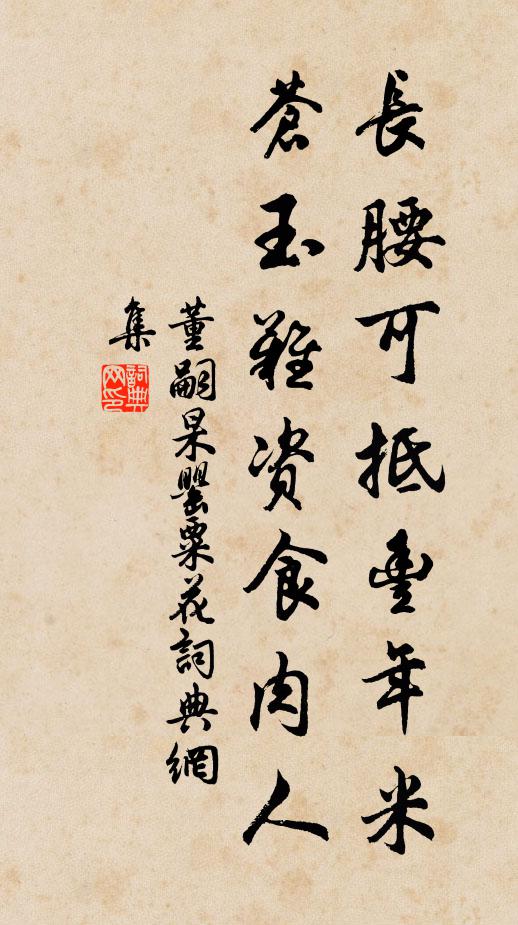 長腰可抵豐年米
蒼玉難資食肉人
董嗣杲罌粟花詞典網
集
詞典網印